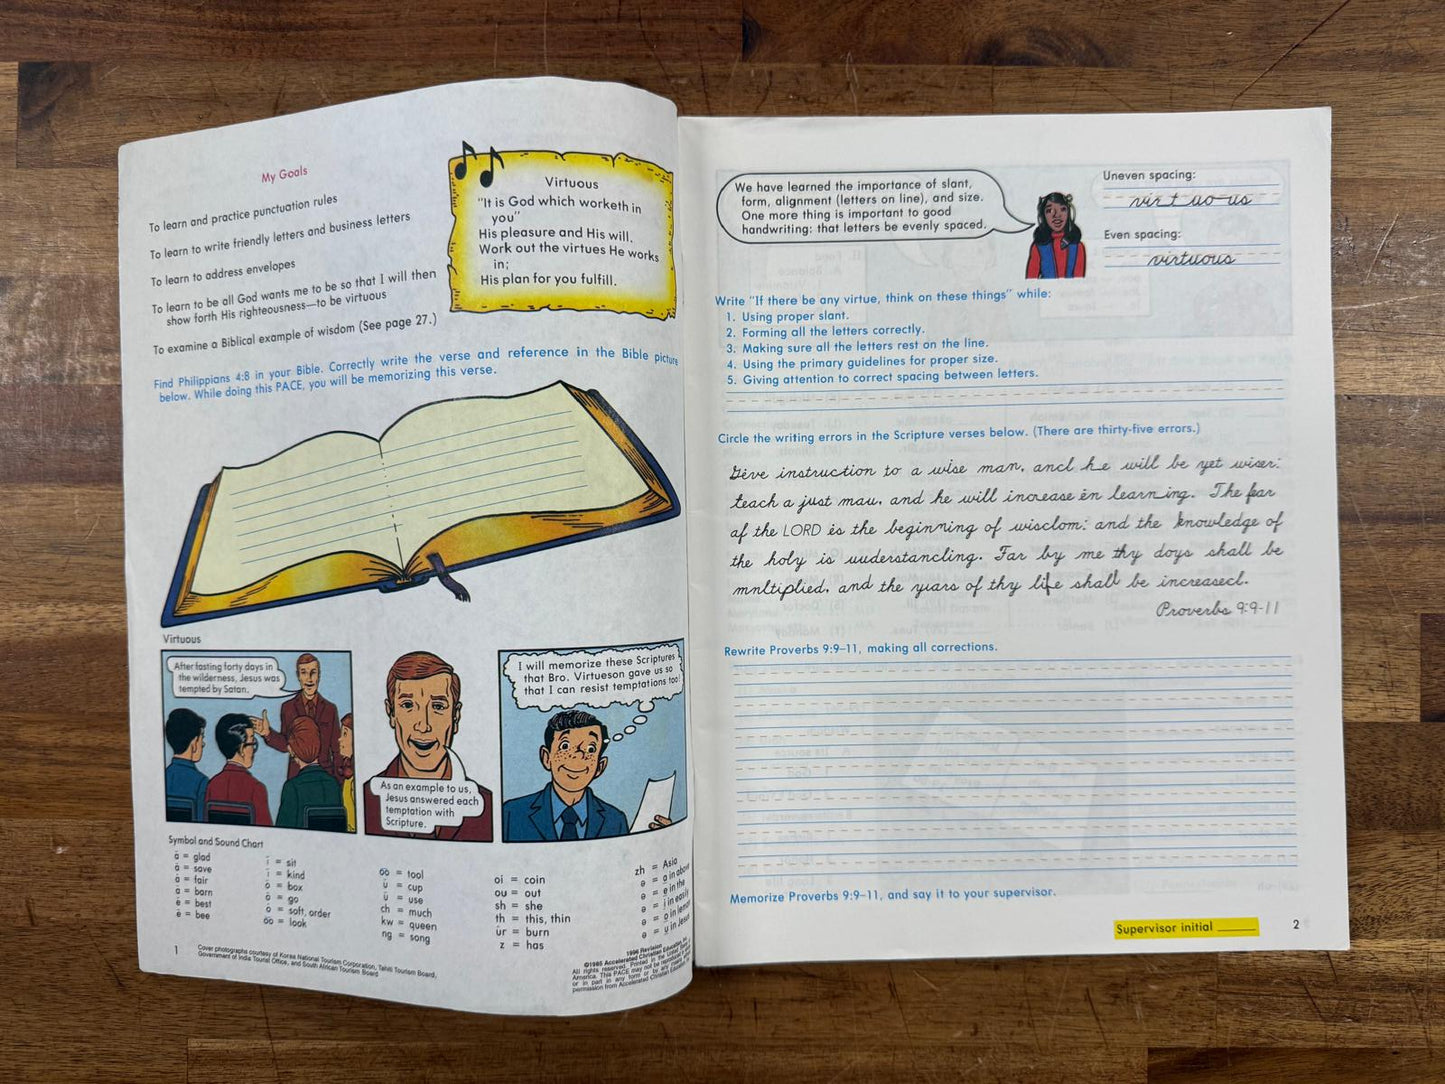 My Goals
To learn and practice punctuation rules
To learn to write friendly letters and business letters
To learn to address envelopes
To learn to be all God wants me to be so that I will then
show forth His righteousness—to be virtuous
To examine a Biblical example of wisdom (See page 27.)
Virtuous
"It is God which worketh in
you"
His pleasure and His will.
Work out the virtues He works
in;
His plan for you fulfill.
Find Philippians 4:8 in your Bible. Correctly write the verse and reference in the Bible picture
below. While doing this PACE, you will be memorizing this verse.
Virtuous
After fasting forty days in
the wilderness, Jesus was
tempted by Satan.
As an example to us,
Jesus answered each
temptation with
Scripture.
I will memorize these Scriptures
that Bro. Virtueson gave us so
that I can resist temptations too!
Symbol and Sound Chart
= glad
= save
= fair
= barn
= best
= bee
= sit
= kind
= box
= go
= soft, order
= look
= tool
= cup
= use
ch = much
kw = queen
ng = song
oi = coin
ou = out
sh = she
th = this, thin
ur = burn
z = has
zh = Asia
ə = a in above
ə = e in the
ə = i in easily
ə = o in lemon
ə = u in Jesus
1
Cover photographs courtesy of Korea National Tourism Corporation, Tahiti Tourism Board,
Government of India Tourist Office, and South African Tourism Board
1996 Revision
©1986 Accelerated Christian Education,
All rights reserved. Printed in the United States
America. This PACE may not be reproduced
or in part in any form or by any means
permission from Accelerated Christian Education
We have learned the importance of slant,
form, alignment (letters on line), and size.
One more thing is important to good
handwriting: that letters be evenly spaced.
Uneven spacing:
virtuous
Even spacing:
virtuous
Write "If there be any virtue, think on these things" while:
1. Using proper slant.
2. Forming all the letters correctly.
3. Making sure all the letters rest on the line.
4. Using the primary guidelines for proper size.
5. Giving attention to correct spacing between letters.
Circle the writing errors in the Scripture verses below. (There are thirty-five errors.)
Geve instruction to a wise man, ancl he will be yet wiser:
teach a just mau, and he will increase en learning. The fear
af the LORD es the beginning of wisclom: and the knowledge of
the holy is uuderstancling. Far by me thy doys shall be
mnltiplied, and the years of thy life shall be increasecl.
Proverbs 9:9-11
Rewrite Proverbs 9:9–11, making all corrections.
Memorize Proverbs 9:9–11, and say it to your supervisor.
Supervisor initial
2